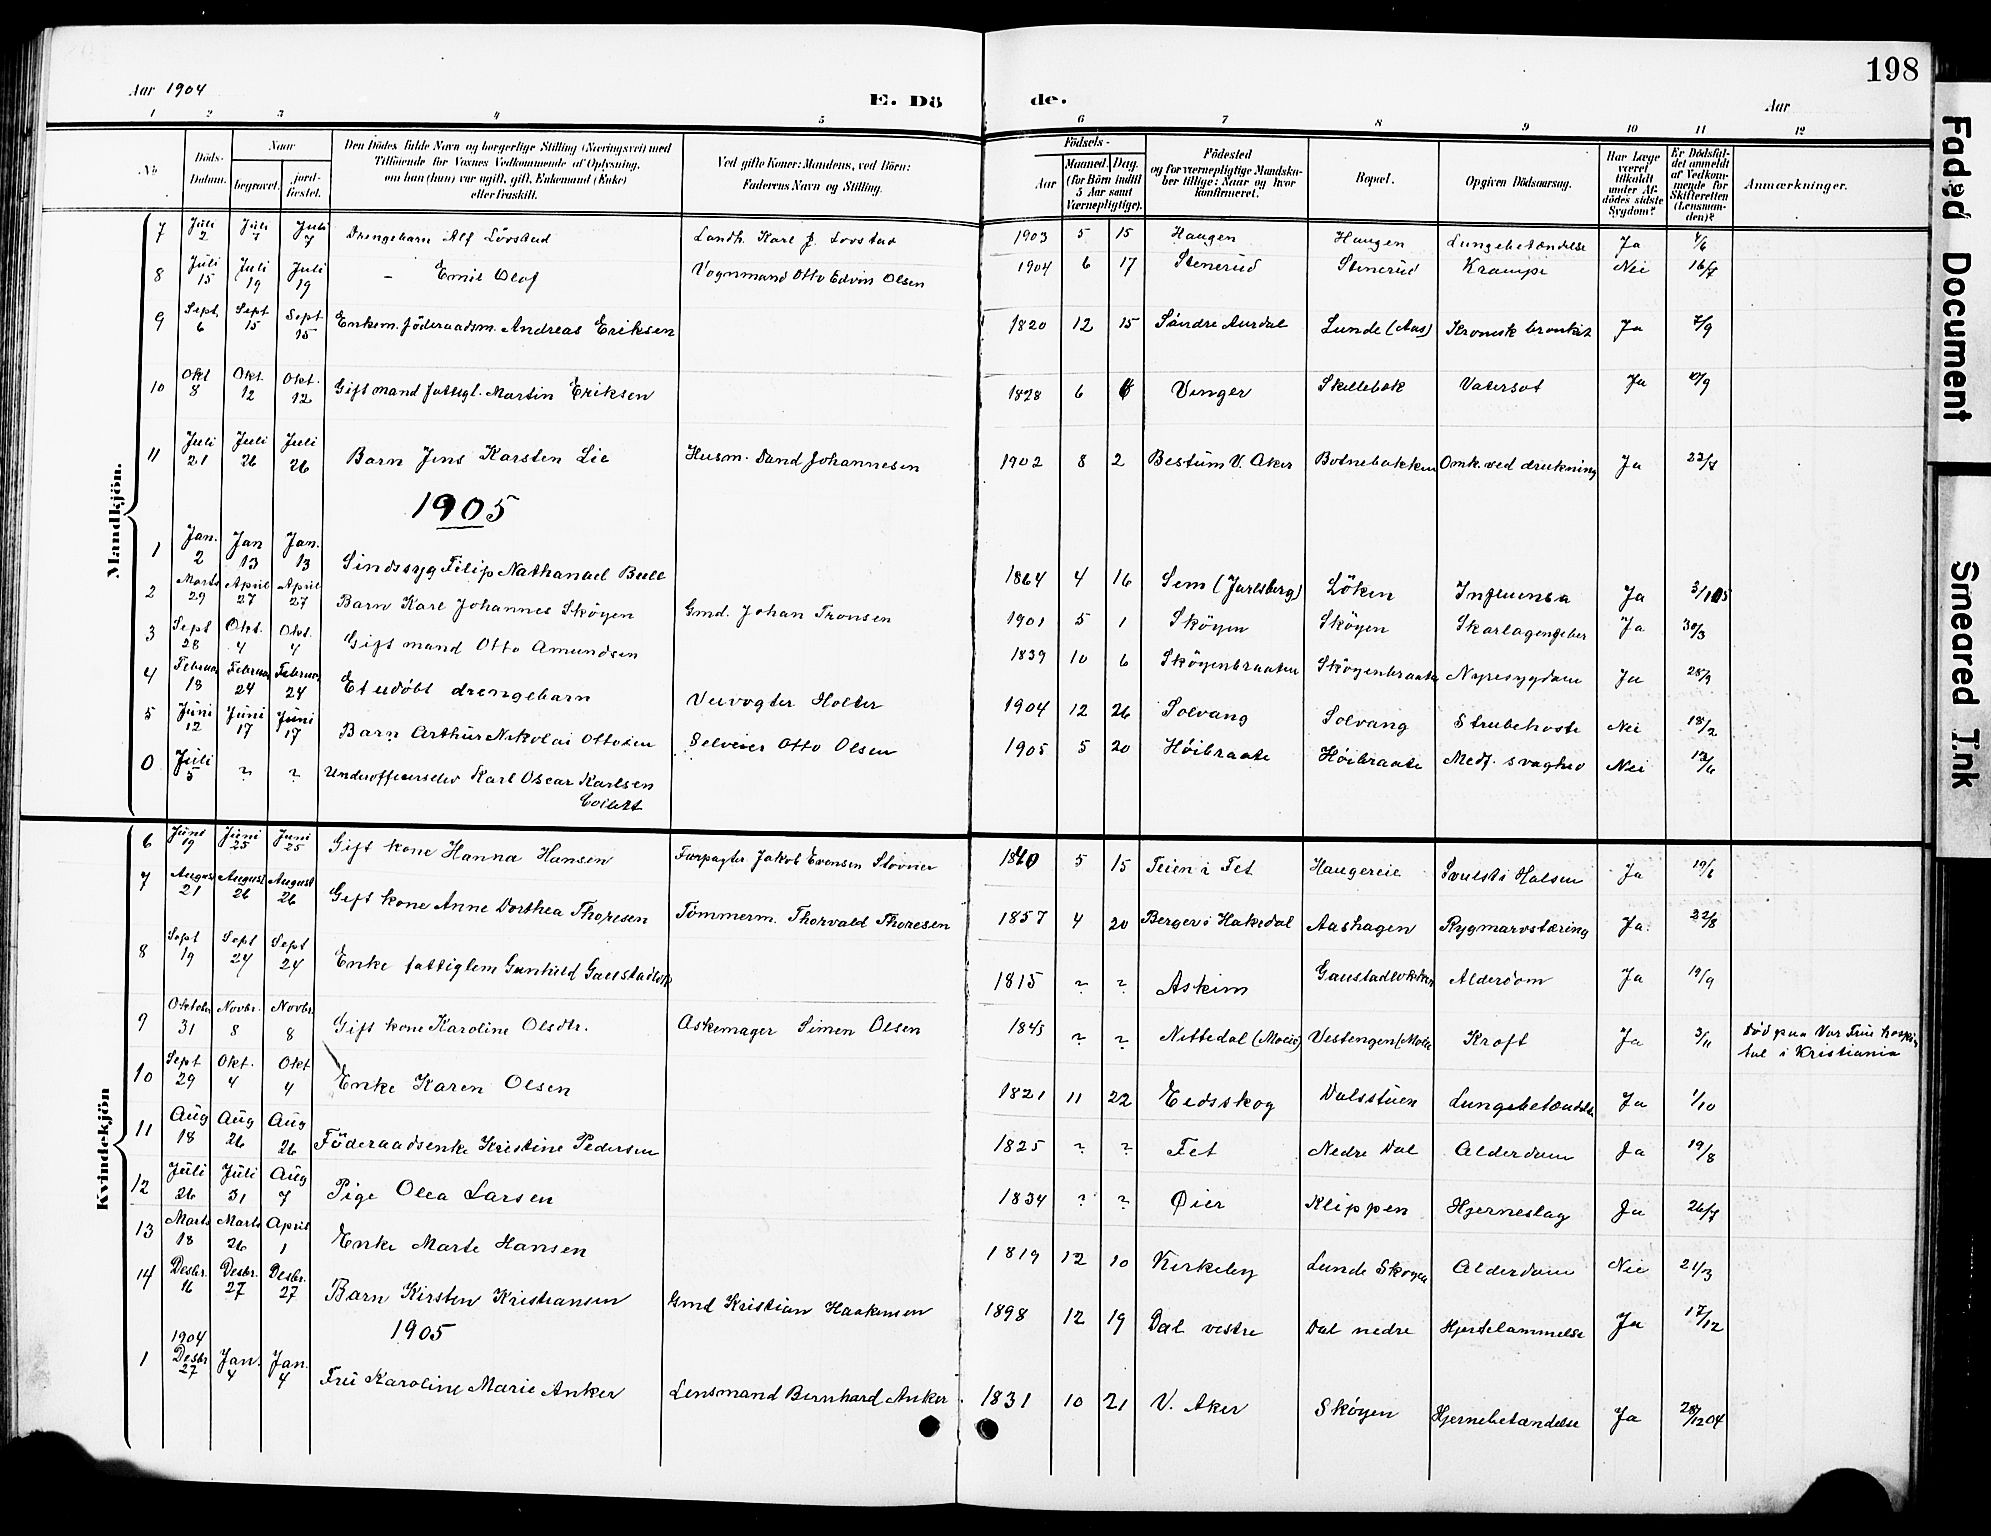 198
Aar 1904
E. Dö
de.
Aar
1 2 3 4 5 6 7 8 9 10 11 12
No
Döds-Datum.
Naar
begravet.
jord-fæstet.
Den Dödes fulde Navn og borgerlige Stilling (Næringsvei) med
Tilföiende for Voxnes Vedkommende af Oplysning,
om han (hun) var ugift, gift, Enkemand (Enke)
eller fraskilt.
Ved gifte Koner: Mandens, ved Börn:
Faderens Navn og Stilling.
Födsels-
Aar
Maaned. Dag.
(for Börn indtil
5 Aar samt
Værnepligtige).
Födested
og for værnepligtige Mandska-
ber tillige: Naar og hvor
konfirmeret.
Bopæl.
Opgiven Dödsaarsag.
Har Læge
været
tilkaldt
under Af-
dödes sidste
Sygdom?
Er Dödsfal-
det anmeldt
af Vedkom-
mende for
Skifteretten
(Lensman-
den)?
Anmærkninger.
Mandkjön.
7 Juli 2 Juli 7 Juli 7 Drengebarn Alf Lövstad Landh. Karl J. Lovstad 1903 5 15 Haugen Haugen Lungebetændelse Ja
8 Juli 15 Juli 19 Juli 19 – Emil Olof Vognmand Otto Edvin Olsen 1904 6 17 Stenerud Stenerud Krampe Nei 16/7
9 Sept. 6 Sept 15 Sept 15 Enkem. föderaadsm. Andreas Eriksen 1820 12 15 Söndre Aurdal Lunde (Aas) Kronisk bronkit Ja 7/9
10 Okt 8 Okt. 12 Okt. 12 Gift mand fattigl. Martin Eriksen 1828 6 Vinger Skillebæk Vatersot Ja
11 Juli 21 Juli 26 Juli 26 Barn Jens Karsten Lie Husm. Johannesen 1902 8 2 Bestum V. Aker Botnebakken Omk. ved drukning Ja 22/7
1905
1 Jan. 2 Jan 13 Jan. 13 Sindssyg Filip Nathanael Bull 1864 4 16 Sem (Jarlsberg) Löken Influensa Ja
2 Marts 29 April 27 April 27 Barn Karl Johannes Sköyen Gmd. Johan Tronsen 1901 5 1 Sköyen Sköyen Skarlagensfeber Ja 30/3
3 Sept 28 Okt. 4 Okt. 4 Gift mand Otto Amundsen 1839 10 6 Sköyenbraaten Sköyenbraaten Nyresygdom Ja 28/9
4 Februar 18 Februar 24 Februar 24 Et udöbt drengebarn Veivogter Holter 1904 12 26 Solvang Solvang Strubehoste Nei 18/2
5 Juni 12 Juni 17 Juni 17 Barn Arthur Nikolai Ottosen Selveier Otto Olsen 1905 5 20 Höibraate Höibraate Medf. svaghed Nei 13/6
0 Juli 5 ? ? Underofficerselev Karl Oscar Karlsen
Kvindekjön
6 Juni 19 Juni 25 Juni 25 Gift kone Hanna Hansen Forpagter Jakob Evensen Stovner 1840 5 15 Teien i Fet Haugereie Svulst i Halsen Ja 19/6
7 August 21 August 26 August 26 Gift kone Anne Dorthea Thoresen Tömmerm. Thorvald Thoresen 1857 4 20 Berger i Hakedal Aashagen Rygmarvstæring Ja. 22/8
8 Sept 19 Sept 24 Sept 24 Enke fattiglem Gunhild Gaustadløkk 1815 ? ? Askim Gaustadløkken Alderdom Ja 19/9
9 Oktober 31 Novbr. 8 Novbr. 8 Gift kone Karoline Olsdtr. Askemager Simen Olsen 1843 ? ? Nittedal (Moeie) Vestengen (Moeie Kræft Ja 3/11 Död paa Vor Frue hospi-
tal i Kristiania
10 Sept 29 Okt. 4 Okt 4 Enke Karen Olsen 1821 11 22 Eidsskog Dalsstuen Lungebetændelse Ja 1/10
11 Aug 18 Aug 26 Aug 26 Föderaadsenke Kristine Pedersen 1825 ? ? Fet Nedre Dal Alderdom Ja 19/8
12 Juli 26 Juli 31 Aug 7 Pige Olea Larsen 1834 ? ? Øier Klippen Hjerneslag Ja 26/7
13 Marts 18 Marts 26 April 1 Enke Marte Hansen 1819 12 10 Kirkeby Lunde Skøyen Alderdom Nei 21/3
14 Desbr. 16 Desbr. 27 Desbr. 27 Barn Kirsten Kristiansen Gmd Kristian Haakensen 1898 12 19 Dal vestre Dal nedre Hjertelammelse Ja 17/12
1905
1 1904 Desbr 27 Jan. 4 Jan. 4 Fru Karoline Marie Anker Lensmand Bernhard Anker 1831 10 21 V. Aker Sköyen Hjernebetændelse Ja 28/12 04
Faded Document
Smeared Ink